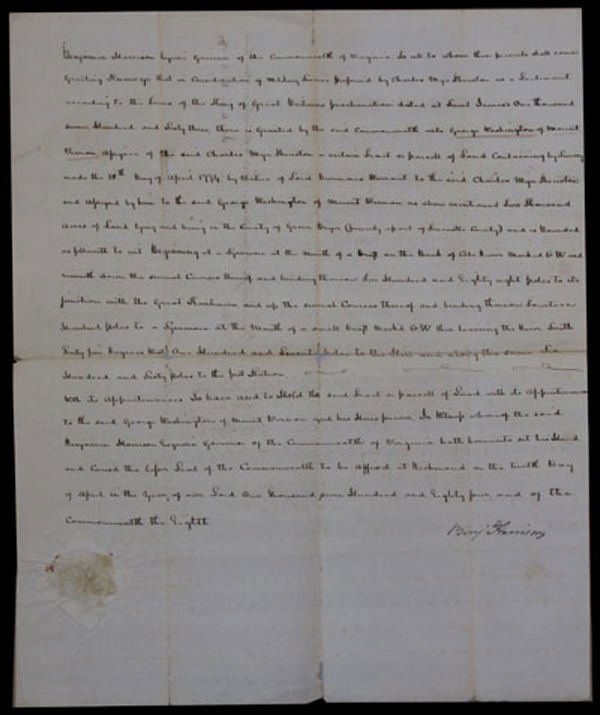 Benjamin Harrison Esquire Governor of the Commonwealth of Virginia To all to whom these presents shall come
Greeting Know ye that in Consideration of Military Service performed by Charles Myn Thruston as a Lieutenant
according to the terms of the King of Great Britains proclamation dated at Saint James's One thousand
seven Hundred and Sixty three there is Granted by the said Commonwealth unto George Washington of Mount
Vernon Assignee of the said Charles Myn Thruston a certain Tract or parcell of Land Containing by Survey
made the 18th Day of April 1774 by Virtue of Lord Warrant to the said Charles Myn Thruston
and Assigned by him to the said George Washington of Mount Vernon as above mentioned Two Thousand
Acres of Land lying and being in the County of Green Bryer (formerly a part of County) and is Bounded
as followeth to wit Beginning at a Sycamore at the mouth of a on the Bank of River Marked G W and
down the several Courses thereof and binding thereon Hundred and Eighty eight poles to its
junction with the Great Kanhawa and up the several Courses thereof and binding thereon
Hundred poles to a Sycamore at the Mouth of a small Marked G W then leaving the River South
Sixty Degrees West One Hundred and poles to the and along the same Six
Hundred and Sixty poles to the first Station
With its Appurtenances To have and to Hold the said Tract or parcell of Land with its Appurtenances
to the said George Washington of Mount Vernon and his Heirs forever In Witness whereof the said
Benjamin Harrison Esquire Governor of the Commonwealth of Virginia hath hereunto set his Hand
and Caused the Seal of the Commonwealth to be affixed at Richmond on the Day
of April in the Year of our Lord One Thousand seven Hundred and Eighty four and of the
Commonwealth the Eighth
Benj Harrison